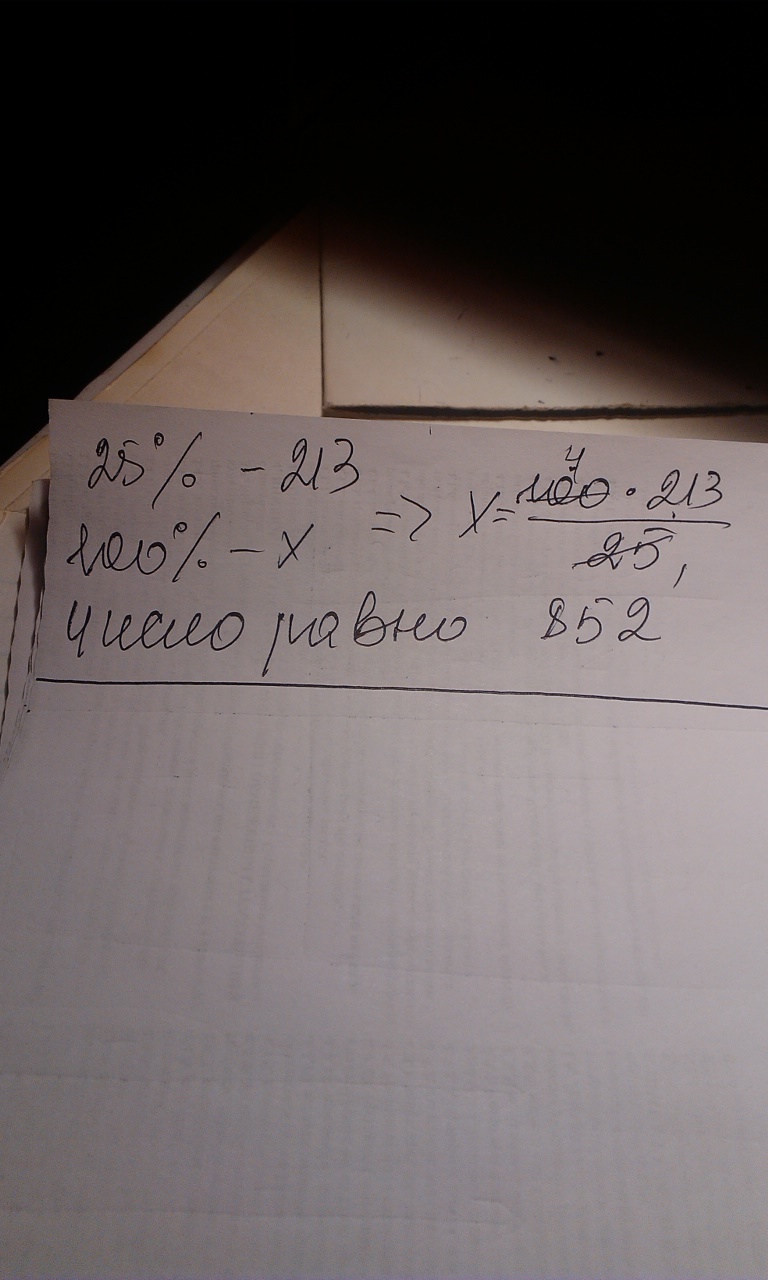 25% - 213
100% - x => x = 4 100 · 213 / 25,
число равно 852